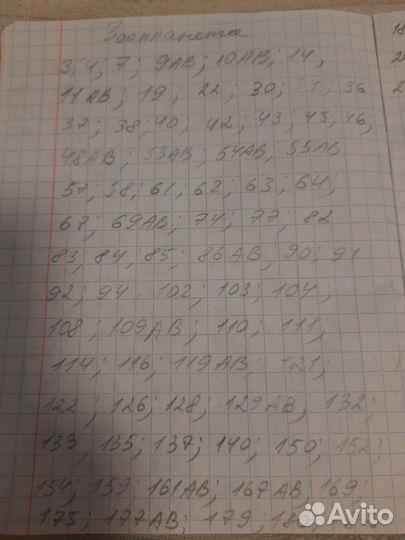 Зоопланета
3; 4; 7; 9АВ; 10АВ; 14,
11АВ; 19; 22; 30; 31; 36
37; 38; 40; 42; 43; 45; 46;
48АВ; 53АВ, 54АВ, 55АВ
57; 58; 61; 62; 63; 64;
67; 69АВ; 74; 77; 82
83; 84, 85; 86АВ; 90; 91
92; 94, 102; 103; 104;
108; 109АВ; 110; 111;
114; 116; 119АВ; 121;
122; 126; 128; 129АВ; 132;
133, 135; 137; 140; 150; 152;
154; 159 161АВ; 167АВ 169;
175; 177АВ; 179, 18
Avito